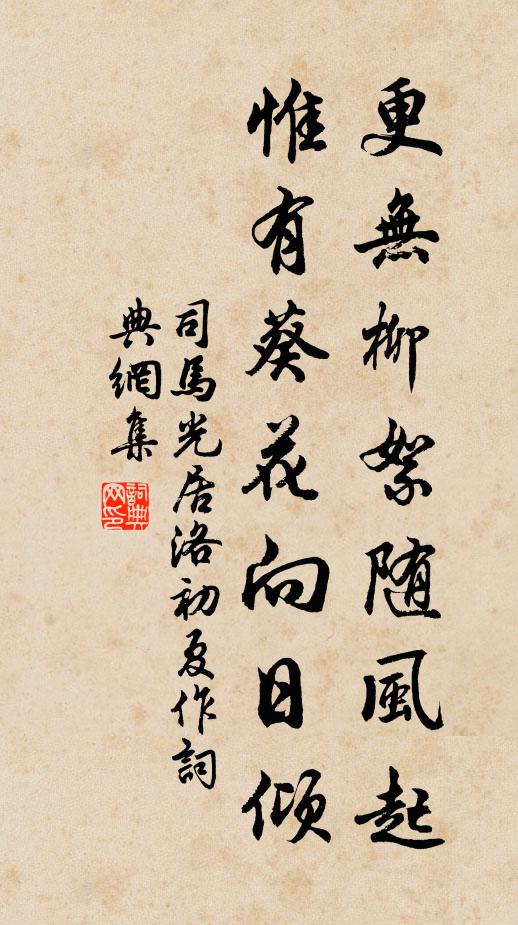 更無柳絮随風起
惟有葵花向日傾
司馬光居洛初夏作詞
典網集
詞典网印